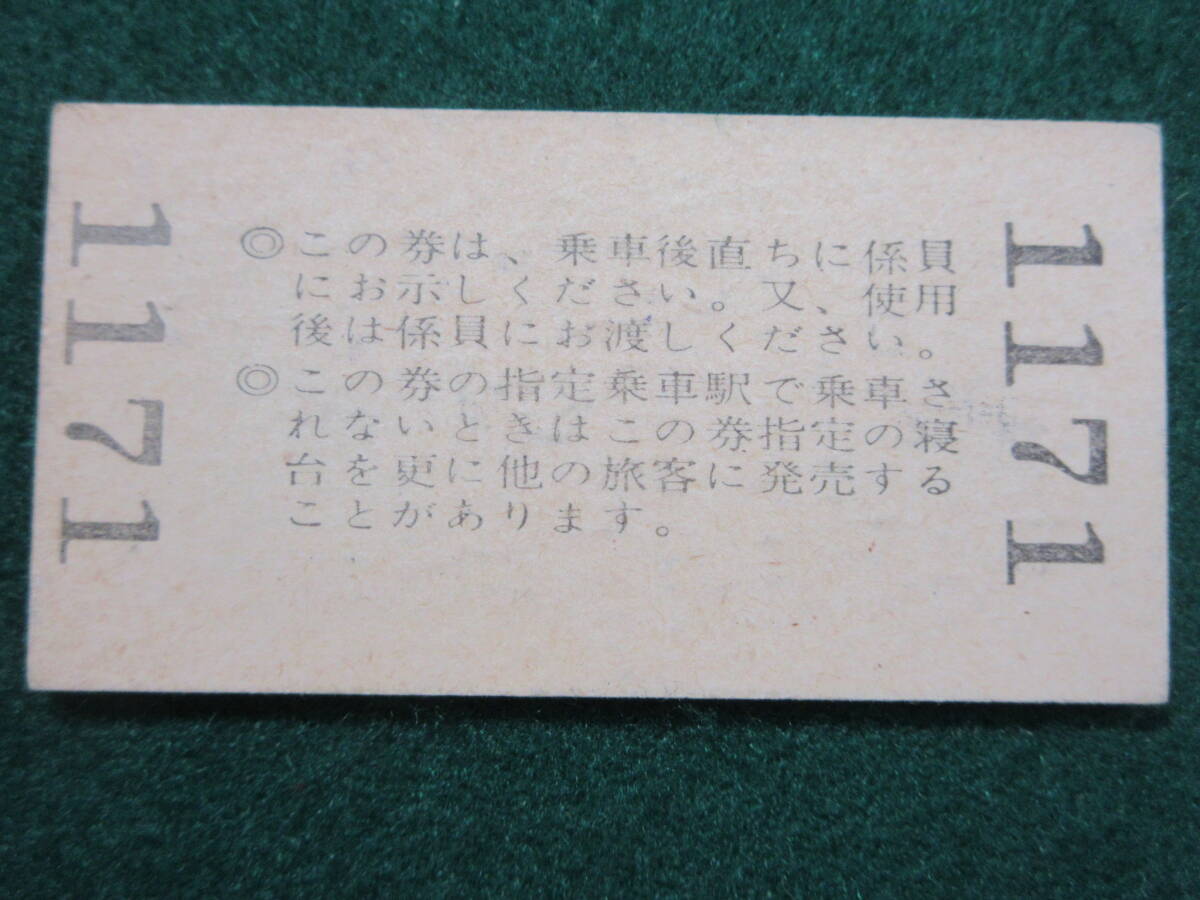 1171
◎この券は、乗車後直ちに係員
にお示しください。又、使用
後は係員にお渡しください。
◎この券の指定乗車駅で乗車さ
れないときはこの券指定の寝
台を更に他の旅客に発売する
ことがあります。
1171